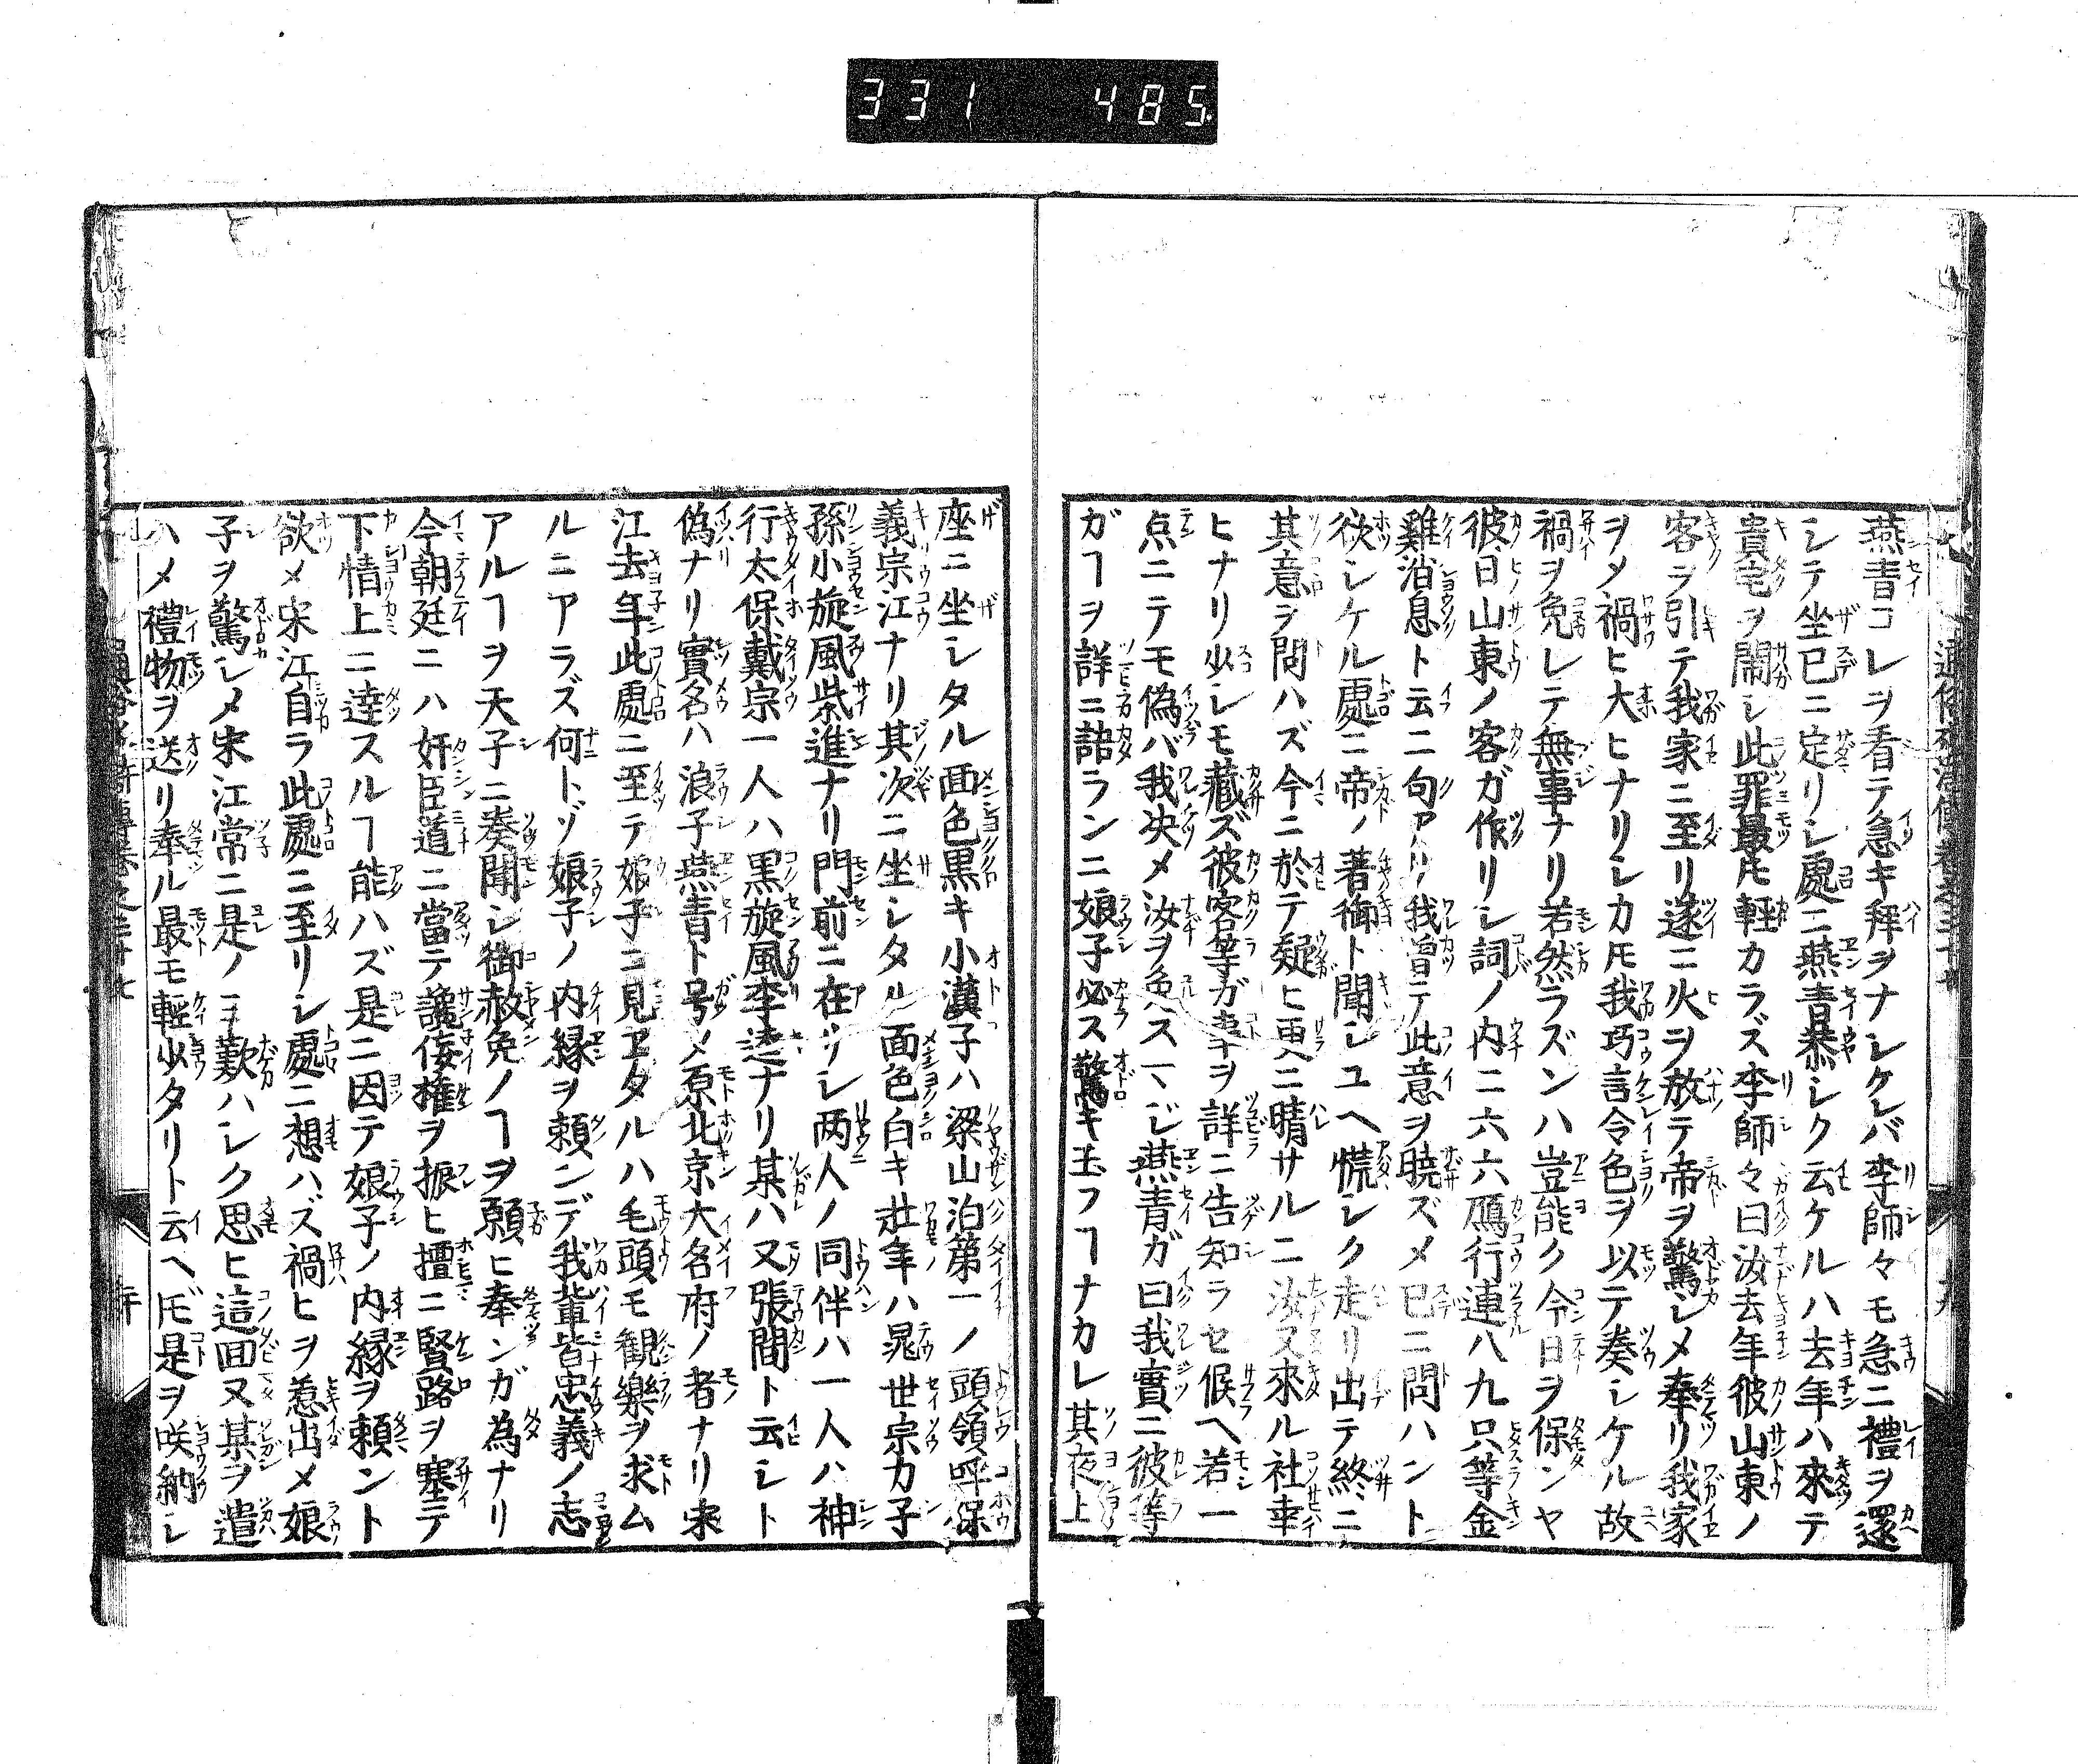 331 485
燕青コレヲ看テ急キ拜ヲナシケレバ李師々モ急ニ禮ヲ還
シテ坐已ニ定リシ處ニ燕青恭シク云ケルハ去年ハ來テ
貴宅ヲ閙シ此罪最モ輕カラズ李師々曰汝去年彼山東ノ
客ヲ引テ我家ニ至リ遂ニ火ヲ放テ帝ヲ驚シメ奉リ我家
ヲメ禍ヒ大ヒナリシカ𪜈我巧言令色ヲ以テ奏シケル故
禍ヲ免レテ無事ナリ若然ラズンハ豈能ク今日ヲ保ンヤ
彼日山東ノ客ガ作リシ詞ノ内ニ六六鴈行連八九只等金
雞消息ト云ニ句アリ我曽テ此意ヲ曉ズメ已ニ問ハント
欲シケル處ニ帝ノ著御ト聞シユヘ慌シク走リ出テ終ニ
其意ヲ問ハズ今ニ於テ疑ヒ更ニ晴サルニ汝又來ル社幸
ヒナリ少シモ藏ズ彼客等ガ事ヲ詳ニ告知ラセ候ヘ若一
点ニテモ偽バ我决メ汝ヲ免スマジ燕青ガ曰我實ニ彼等
ガヿヲ詳ニ語ランニ娘子必ス驚キ玉フヿナカレ其夜上
座ニ坐シタル面色黒キ小漢子ハ梁山泊第一ノ頭領呼保
義宗江ナリ其次ニ坐シタル面色白キ壯年ハ晁世宗カ子
孫小旋風柴進ナリ門前ニ在リシ两人ノ同伴ハ一人ハ神
行太保戴宗一人ハ黒旋風李逵ナリ某ハ又張間ト云シト
偽ナリ實名ハ浪子燕青ト号メ原北京大名府ノ者ナリ宋
江去年此處ニ至テ娘子ニ見ヱタルハ毛頭モ観樂ヲ求ム
ルニアラズ何トゾ娘子ノ内縁ヲ頼ンデ我輩皆忠義ノ志
アルヿヲ天子ニ奏聞シ御赦免ノヿヲ願ヒ奉ンガ為ナリ
今朝廷ニハ奸臣道ニ當テ讒佞権ヲ振ヒ擅ニ賢路ヲ塞テ
下情上ニ達スルヿ能ハズ是ニ因テ娘子ノ内縁ヲ頼ント
欲メ宋江自ラ此處ニ至リシ處ニ想ハズ禍ヒヲ惹出メ娘
子ヲ驚シメ宋江常ニ是ノミ歎ハシク思ヒ這回又某ヲ遣
ハメ禮物ヲ送リ奉ル最モ輕少タリト云ヘ𪜈是ヲ咲納シ